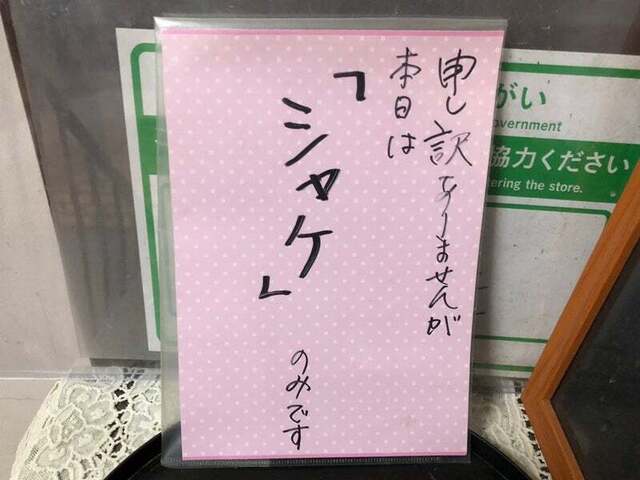 申し訳ありませんが
本日は
「シャケ」
のみです
がい
overnment
協力ください
ering the store.